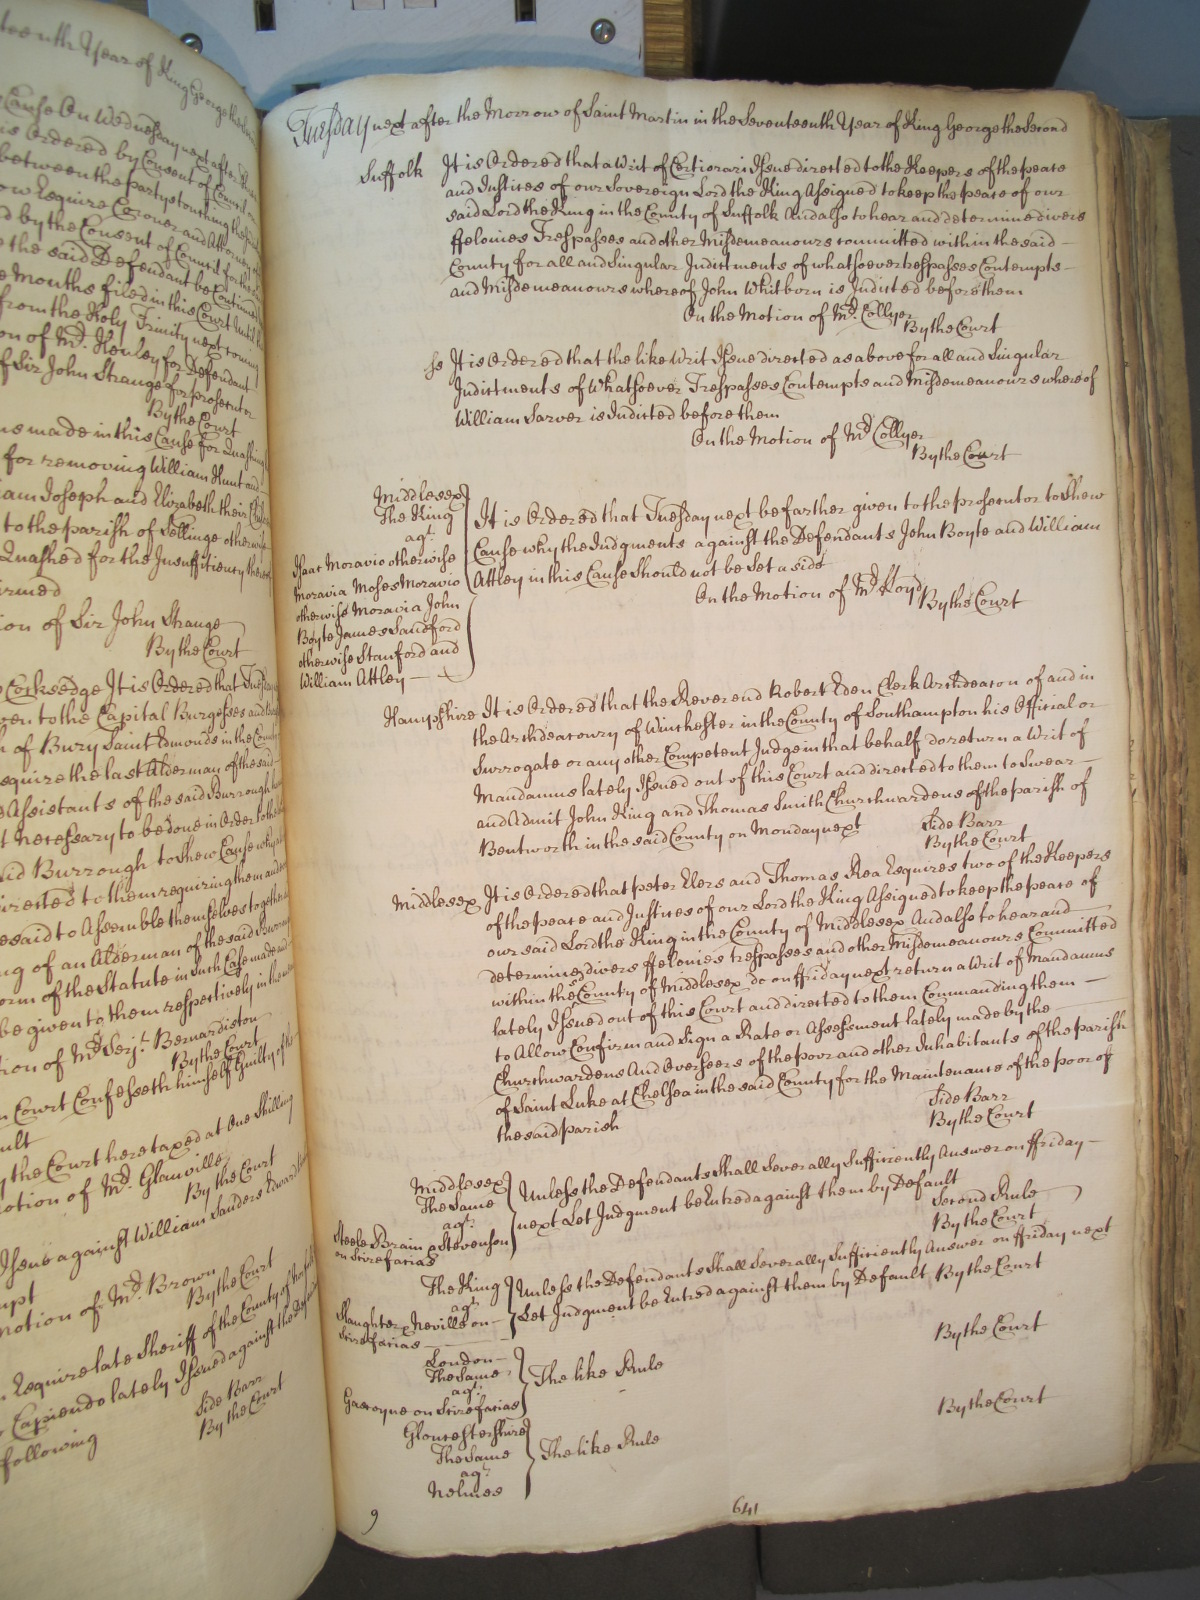 teenth Year of King George the
Cause On Wednesday next after
is Ordered by Consent of Council
between the partys touching the
Esquire Coroner and Attorney
d by the Consent of Council for the
the said Defendant be Continued
Months filed in this Court Until
from the Holy Trinity next coming
on of Mr. Henley for Defendant
f Sir John Strange for prosecutor
By the Court
ns made in this Cause for Quashing
for removing William Hunt and
iam Joseph and Elizabeth their
to the parish of Sellinge otherwise
Quashed for the Insufficiency
irmed
ion of Sir John Strange
By the Court
Corksedge It is Ordered that
ven to the Capital Burgesses and
h of Bury Saint Edmonds in the County
squire the last Alderman of the said
Assistants of the said Burrough
t necessary to be done in Order to the
id Burrough to Shew Cause why
irected to them requiring them
esaid to Assemble themselves together
ng of an Alderman of the said
orm of the Statute in Such Case made and
be given to them respectively in the
tion of Mr. Serjt. Bernardiston
By the Court
n Court Confesseth himself Guilty of the
ult
y the Court here taxed at One Shilling
otion of Mr. Glanville
By the Court
Issue against William Sanders Edward
mpt
motion of Mr. Brown
By the Court
Esquire late Sheriff of the County of
Capiendo lately Issued against the
Side Barr
By the Court
following
Tuesday next after the Morrow of Saint Martin in the Seventeenth Year of King George the Second
Suffolk It is Ordered that a Writ of Certiorari Issue directed to the Keepers of the peace
and Justices of our Sovereign Lord the King Assigned to keep the peace of our
said Lord the King in the County of Suffolk And also to hear and determine divers
ffelonies Trespasses and other Misdemeanours committed within the said
County for all and Singular Indictments of whatsoever trespasses Contempts
and Misdemeanours whereof John Whitborn is Indicted before them
On the Motion of Mr. Collyer
By the Court
Ss It is Ordered that the like Writ Issue directed as above for all and Singular
Indictments of Whatsoever Trespasses Contempts and Misdemeanours whereof
William Sarver is Indicted before them
On the Motion of Mr Collyer
By the Court
Middlesex
The King
agt.
Isaac Moravio otherwise
Moravia Moses Moravio
otherwise Moravia John
Boyte James Sandford
otherwise Stanford and
William Attley
It is Ordered that Tuesday next be farther given to the prosecutor to Shew
Cause why the Judgments against the Defendants John Boyte and William
Attley in this Cause Should not be Set aside
On the Motion of Mr Lloyd
By the Court
Hampshire It is Ordered that the Reverend Robert Eden Clerk Archdeacon of and in
the Archdeaconry of Winchester in the County of Southampton his Official or
Surrogate or any other Competent Judge in that behalf do return a Writ of
Mandamus lately Issued out of this Court and directed to them to Swear
and Admit John King and Thomas Smith Churchwardens of the parish of
Bentworth in the said County on Monday next
Side Barr
By the Court
Middlesex It is Ordered that peter Elers and Thomas Rea Esquires two of the Keepers
of the peace and Justices of our Lord the King Assigned to keep the peace of
our said Lord the King in the County of Middlesex And also to hear and
determine divers ffelonies trespasses and other Misdemeanours Committed
within the sd. County of Middlesex do on ffriday next return a Writ of Mandamus
lately Issued out of this Court and directed to them Commanding them
to Allow Confirm and Sign a Rate or Assessment lately made by the
Churchwardens And Overseers of the poor and other Inhabitants of the parish
of Saint Luke at Chelsea in the said County for the Maintenance of the poor of
the said parish
Side Barr
By the Court
Middlesex
The Same
agt.
Steele Brain & Stevenson
on Scirefacias
Unless the Defendants Shall Severally Sufficiently Answer on ffriday
next Let Judgment be Entred against them by Default
Second Rule
By the Court
The King
agt.
Slaughter & Neville on
Scirefacias
Unless the Defendants Shall Severally Sufficiently Answer on ffriday next
Let Judgment be Entred against them by Default By the Court
London
The Same
agt.
Gascoyne on Scirefacias
The like Rule
By the Court
Gloucestershire
The Same
agt.
Nelmes
The like Rule
By the Court
9
641